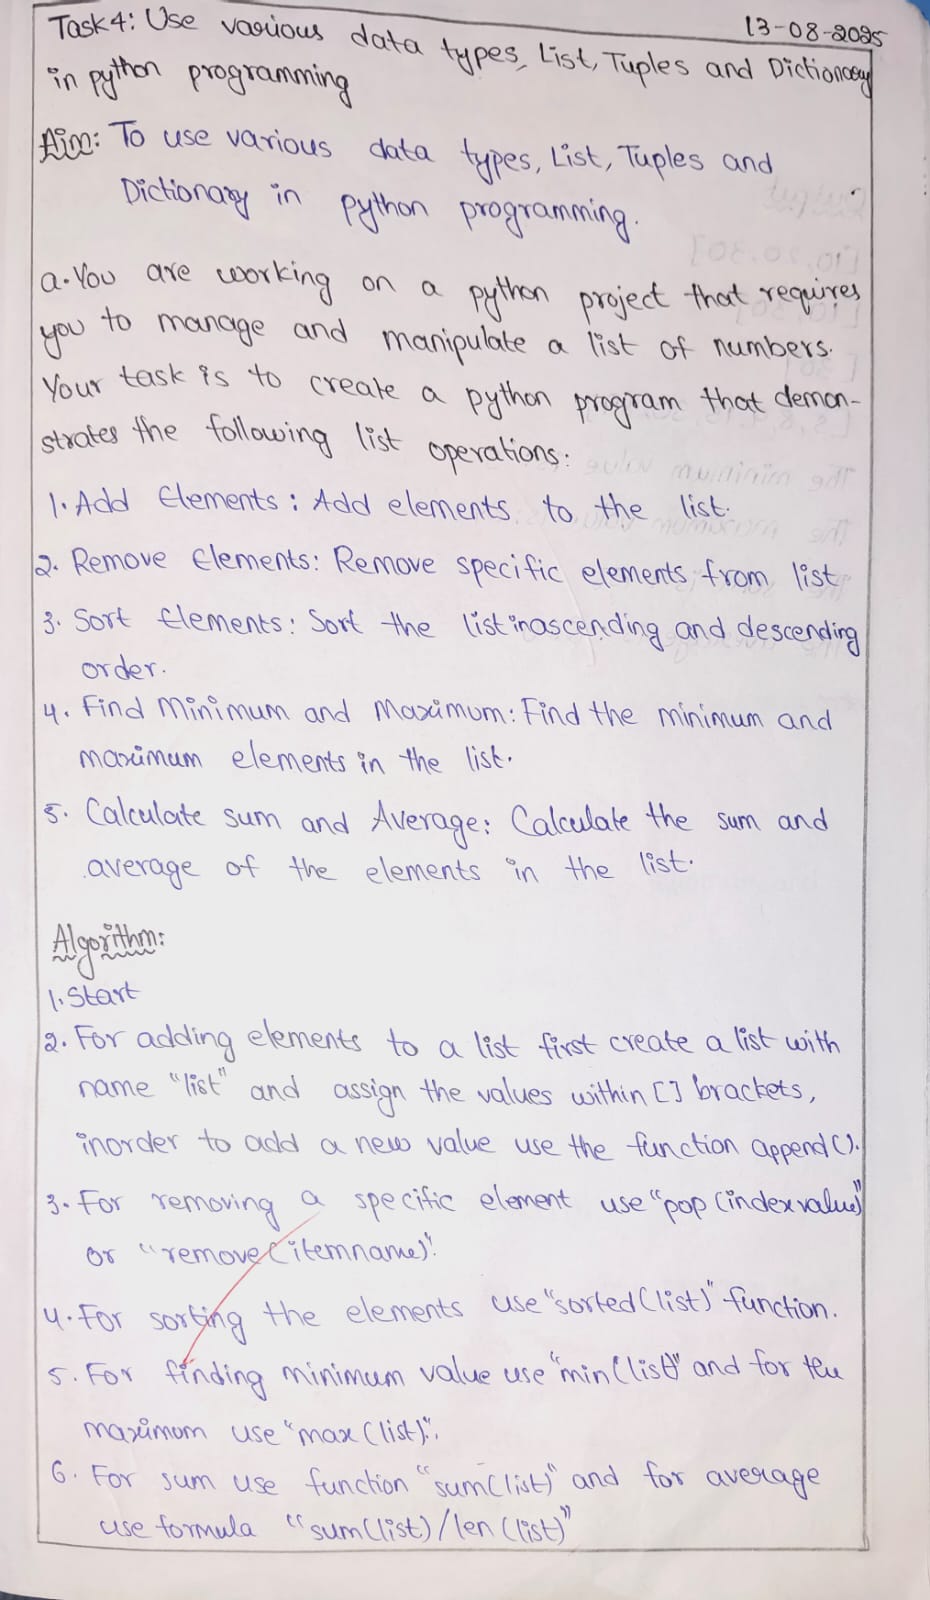 13-08-2025
Task4: Use various data types, List, Tuples and Dictionary
in python programming
Aim: To use various data types, List, Tuples and
Dictionary in python programming.
a. You are working on a python project that requires
you to manage and manipulate a list of numbers.
Your task is to create a python program that demon-
strates the following list operations:
1. Add Elements: Add elements to the list.
2. Remove Elements: Remove specific elements from list
3. Sort Elements: Sort the list inascending and descending
order.
4. Find Minimum and Maximum: Find the minimum and
maximum elements in the list.
5. Calculate sum and Average: Calculate the sum and
average of the elements in the list.
Algorithm:
1. Start
2. For adding elements to a list first create a list with
name "list" and assign the values within [] brackets,
inorder to add a new value use the function append().
3. For removing a specific element use "pop(indexvalue)"
or "remove(itemname)".
4. For sorting the elements use "sorted(list)" function.
5. For finding minimum value use "min(list)" and for the
maximum use "max(list)".
6. For sum use function "sum(list)" and for average
use formula "sum(list)/len(list)"